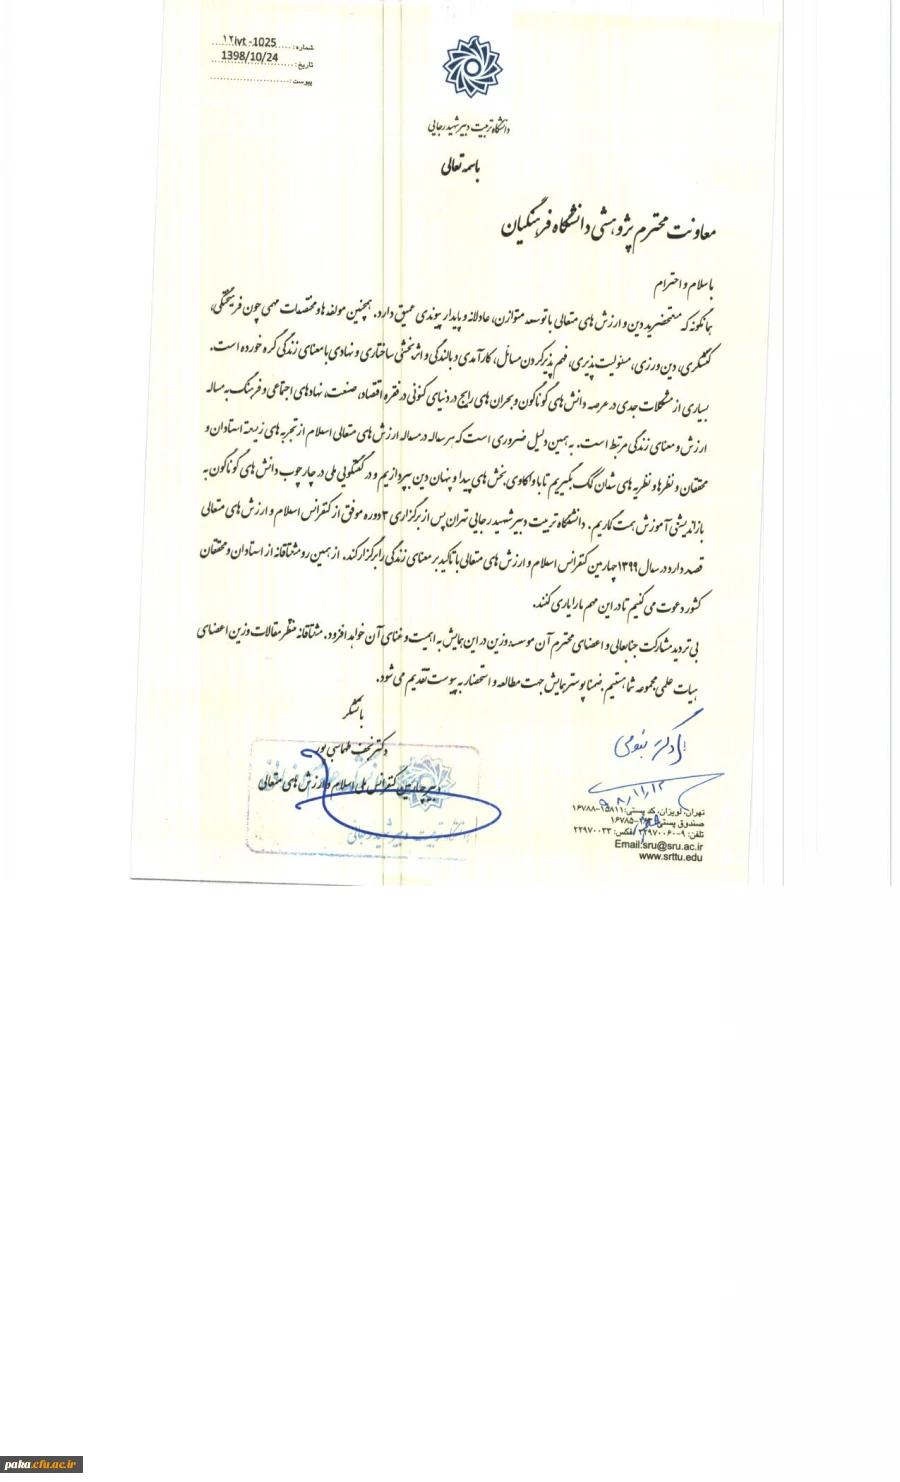 شماره: ۱۲ivt-1025
تاریخ: 1398/10/24
پیوست:
دانشگاه تربیت دبیر شهید رجایی
باسمه تعالی
معاونت محترم پژوهشی دانشگاه فرهنگیان
با سلام و احترام
همانگونه که مستحضرید دین و ارزش های متعالی با توسعه متوازن، عادلانه و پایدار پیوندی عمیق دارد. همچنین مولفه ها و مختصات مهمی چون فرهیختگی،
کنشگری، دین ورزی، مسئولیت پذیری، فهم پذیر کردن مسائل، کارآمدی و بالندگی و اثربخشی ساختاری و نهادی با معنای زندگی گره خورده است.
بسیاری از مشکلات جدی در عرصه دانش های گوناگون و بحران های رایج در دنیای کنونی در فقره اقتصاد، صنعت، نهادهای اجتماعی و فرهنگ به مساله
ارزش و معنای زندگی مرتبط است. به همین دلیل ضروری است که هر ساله در مساله ارزش های متعالی اسلام از تجربه های زیسته استادان و
محققان و نظرها و نظریه های شان کمک بگیریم تا با واکاوی بخش های پیدا و پنهان دین بپردازیم و در گفتگویی ملی در چارچوب دانش های گوناگون به
بازاندیشی آموزش همت گماریم. دانشگاه تربیت دبیر شهید رجایی تهران پس از برگزاری ۳ دوره موفق از کنفرانس اسلام و ارزش های متعالی
قصد دارد در سال ۱۳۹۹ چهارمین کنفرانس اسلام و ارزش های متعالی با تاکید بر معنای زندگی را برگزار کند. از همین رو مشتاقانه از استادان و محققان
کشور دعوت می کنیم تا در این مهم ما را یاری کنند.
بی تردید مشارکت جنابعالی و اعضای محترم آن موسسه وزین در این همایش به اهمیت و غنای آن خواهد افزود. مشتاقانه منتظر مقالات وزین اعضای
هیات علمی مجموعه شما هستیم. ضمنا پوستر همایش جهت مطالعه و استحضار به پیوست تقدیم می شود.
با تشکر
دکتر نجف طهماسبی پور
دبیر چهارمین کنفرانس ملی اسلام و ارزش های متعالی
تهران، لویزان، کد پستی: ۱۵۸۱۱-۱۶۷۸۸
صندوق پستی: ۱۶۷۸۵
تلفن: ۹-۲۲۹۷۰۰۶۰ فکس: ۲۲۹۷۰۰۳۳
Email:sru@sru.ac.ir
www.srttu.edu
paka.cfu.ac.ir